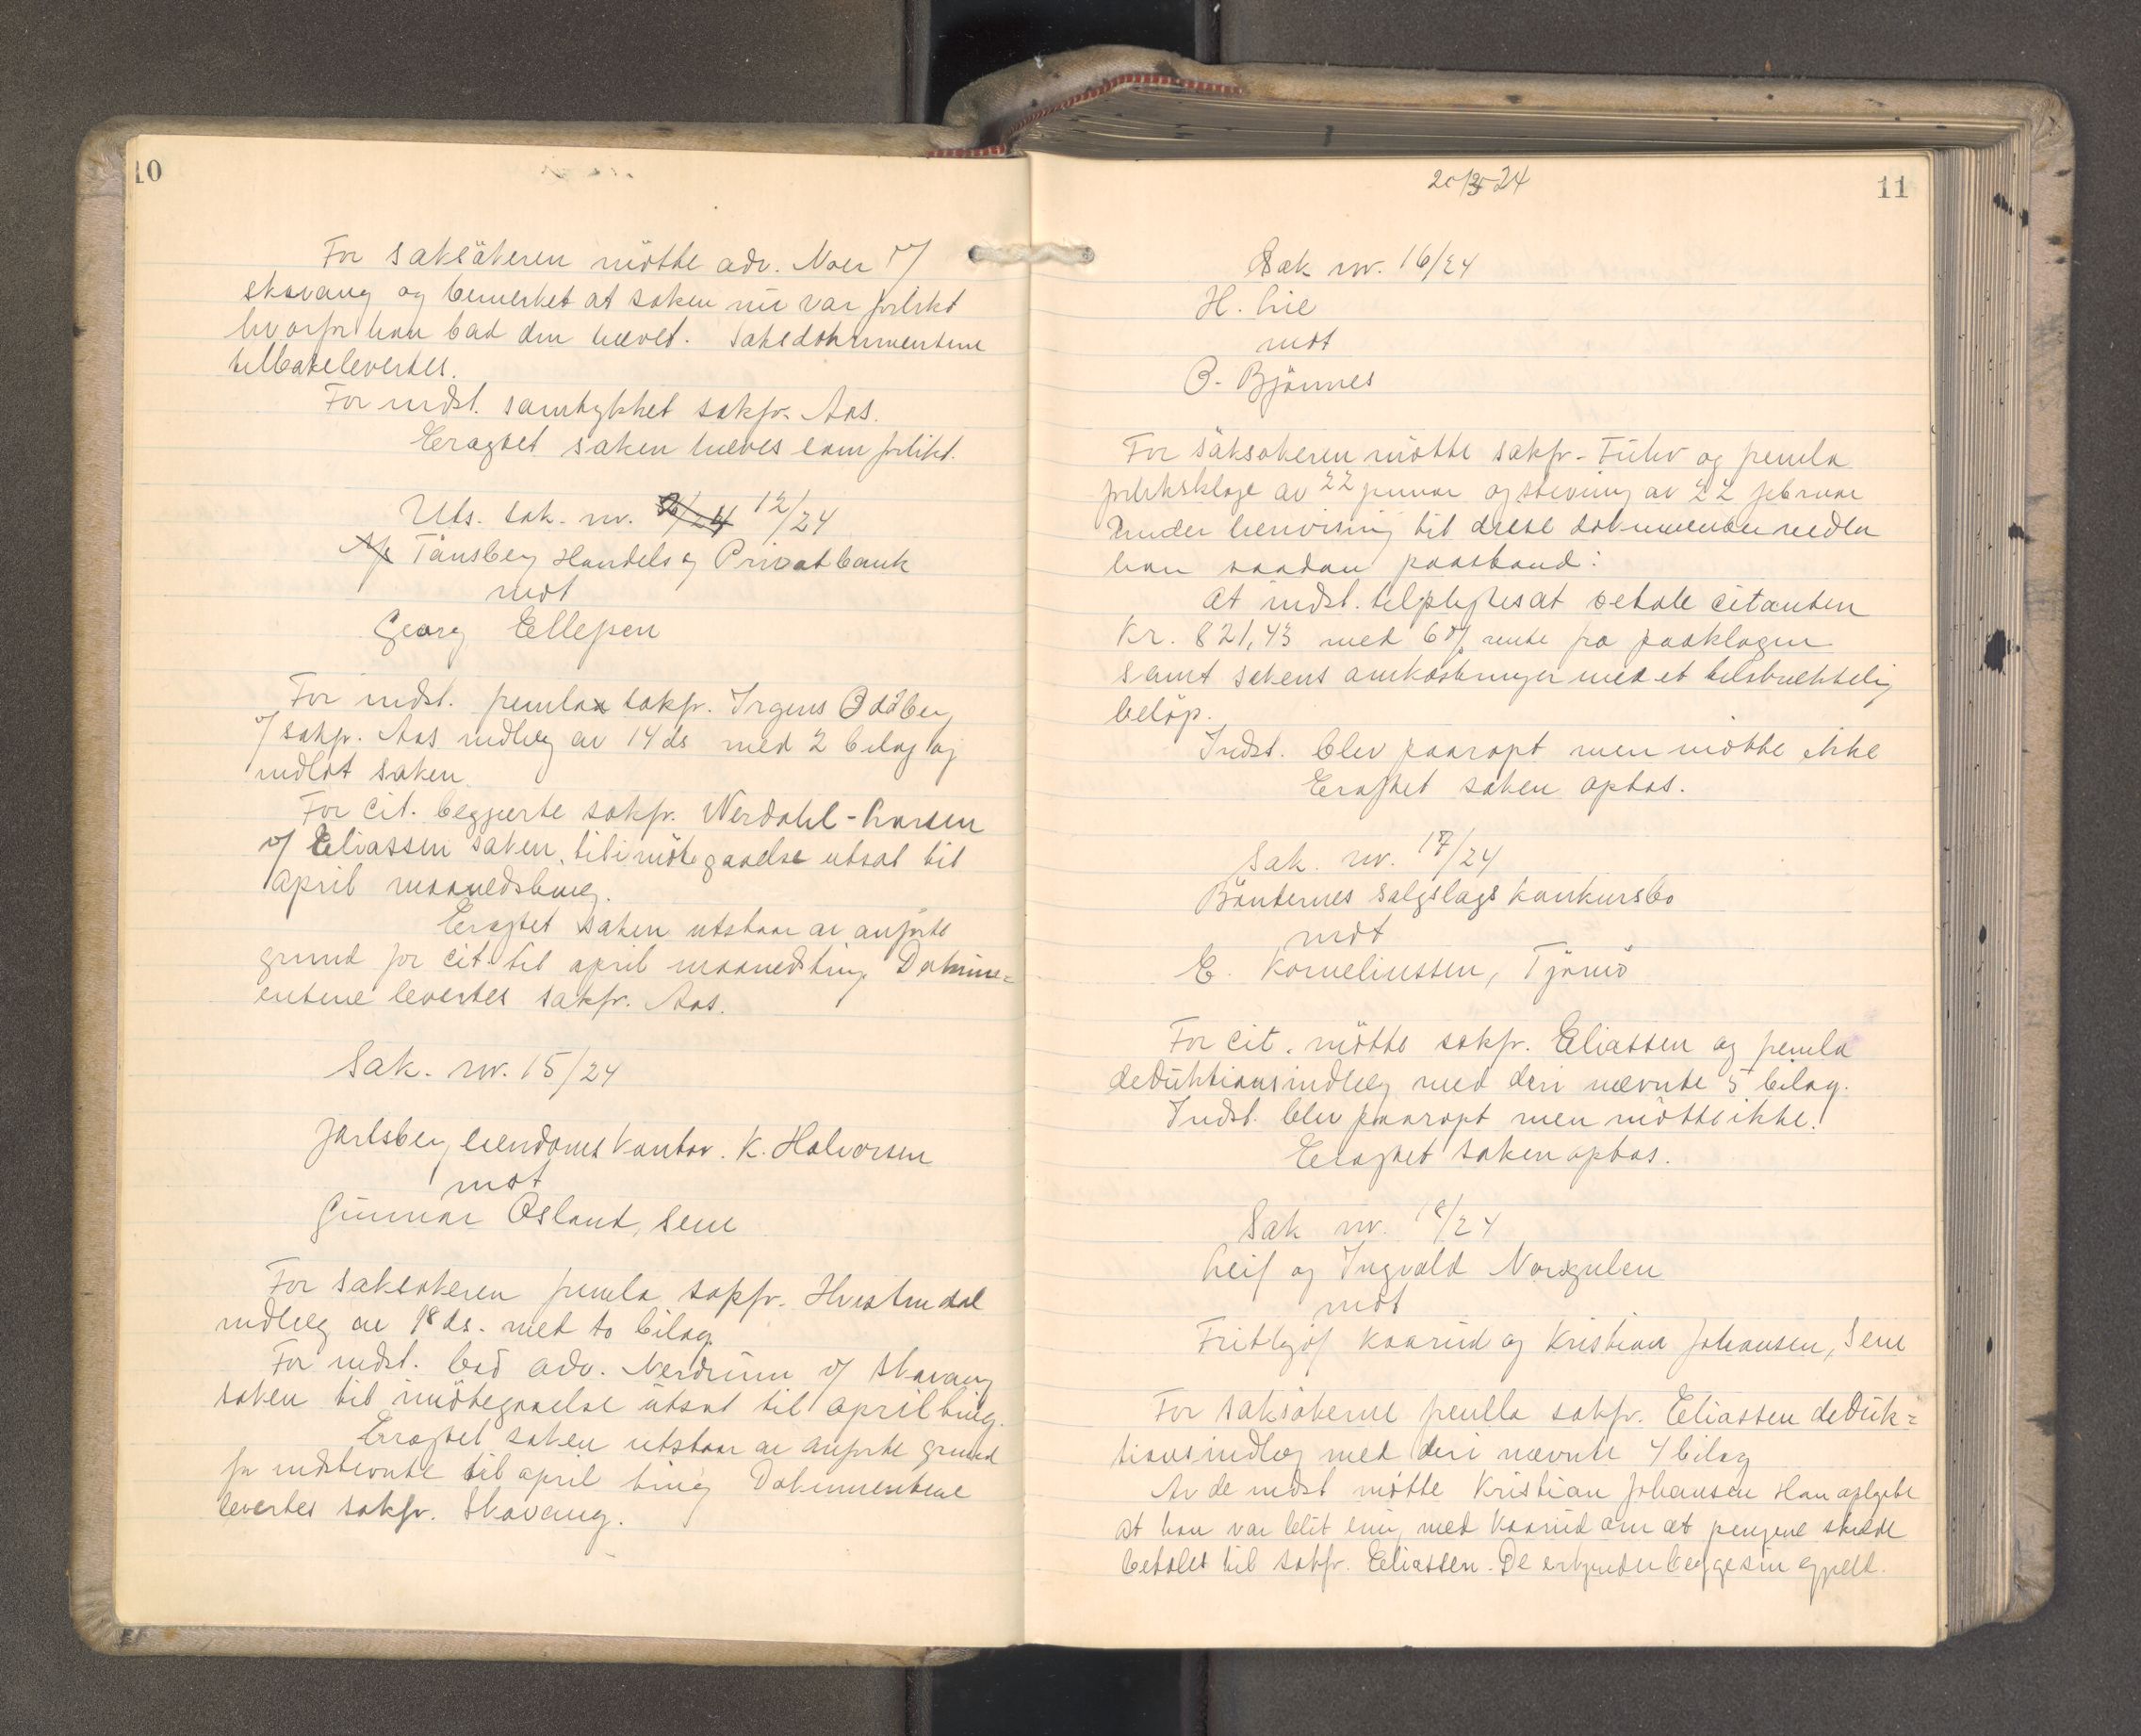 10
For saksökeren mötte adv. Noer v/
Skavang og bemerket at saken nu var forlikt
hvorfor han bad den hævet. Saksdokumentene
tilbakelevertes.
For indst. samtykket sakfr. Aas.
Eragtet saken hæves som forlikt.
Uts. sak. nr. 12/24
Tönsberg Handels og Privatbank
mot
Georg Ellefsen
For indst. fremla sakfr. Irgens Ödberg
v/ sakfr. Aas indlæg av 14 ds med 2 bilag og
indlot saken.
For cit. begjærte sakfr. Werdahl-Larsen
v/ Eliassen saken til imötegaaelse utsat til
april maanedsting.
Eragtet saken utstaar av anförte
grund for cit. til april maanedsting. Dokume=
entene levertes sakfr. Aas.
Sak. nr. 15/24
Jarlsberg eiendomskontor. K. Halvorsen
mot
Gunnar Osland, Sem
For saksökeren fremla sakfr. Hvistendal
indlæg av 18 ds. med to bilag.
For indst. bad adv. Nerdrum v/ Skavang
saken til imötegaaelse utsat til april ting.
Eragtet saken utstaar av anförte grund
for indstevnte til april ting Dokumentene
levertes sakfr. Skavang.
20/3-24
11
Sak nr. 16/24
H. Lie
mot
O. Bjönnes
For saksökeren mötte sakfr. Fuhr og fremla
forliksklage av 22 januar og stevning av 22 februar
Under henvisning til disse dokumenter nedla
han saadan paastand:
At indst. tilpligtes at betale citanten
Kr. 821,43 med 6 % rente fra paaklagen
samt sakens omkostninger med et tilstrækkelig
belöp.
Indst. blev paaropt men mötte ikke
Eragtet saken optas.
Sak. nr. 17/24
Böndernes salgslags konkursbo
mot
E. Korneliussen, Tjömö
For cit. mötte sakfr. Eliassen og fremla
deduktionsindlæg med deri nævnte 5 bilag.
Indst. blev paaropt men mötte ikke.
Eragtet saken optas.
Sak nr. 18/24
Leif og Ingvald
mot
Frithjof Kaarud og Kristian Johansen, Sem
For saksökerne fremla sakfr. Eliassen deduk=
tionsindlæg med deri nævnte 4 bilag
Av de indst mötte Kristian Johansen Han oplyste
at han var blit enig med Kaarud om at pengene skulde
betales til sakfr. Eliassen. De erkjender begge sin gjæld.